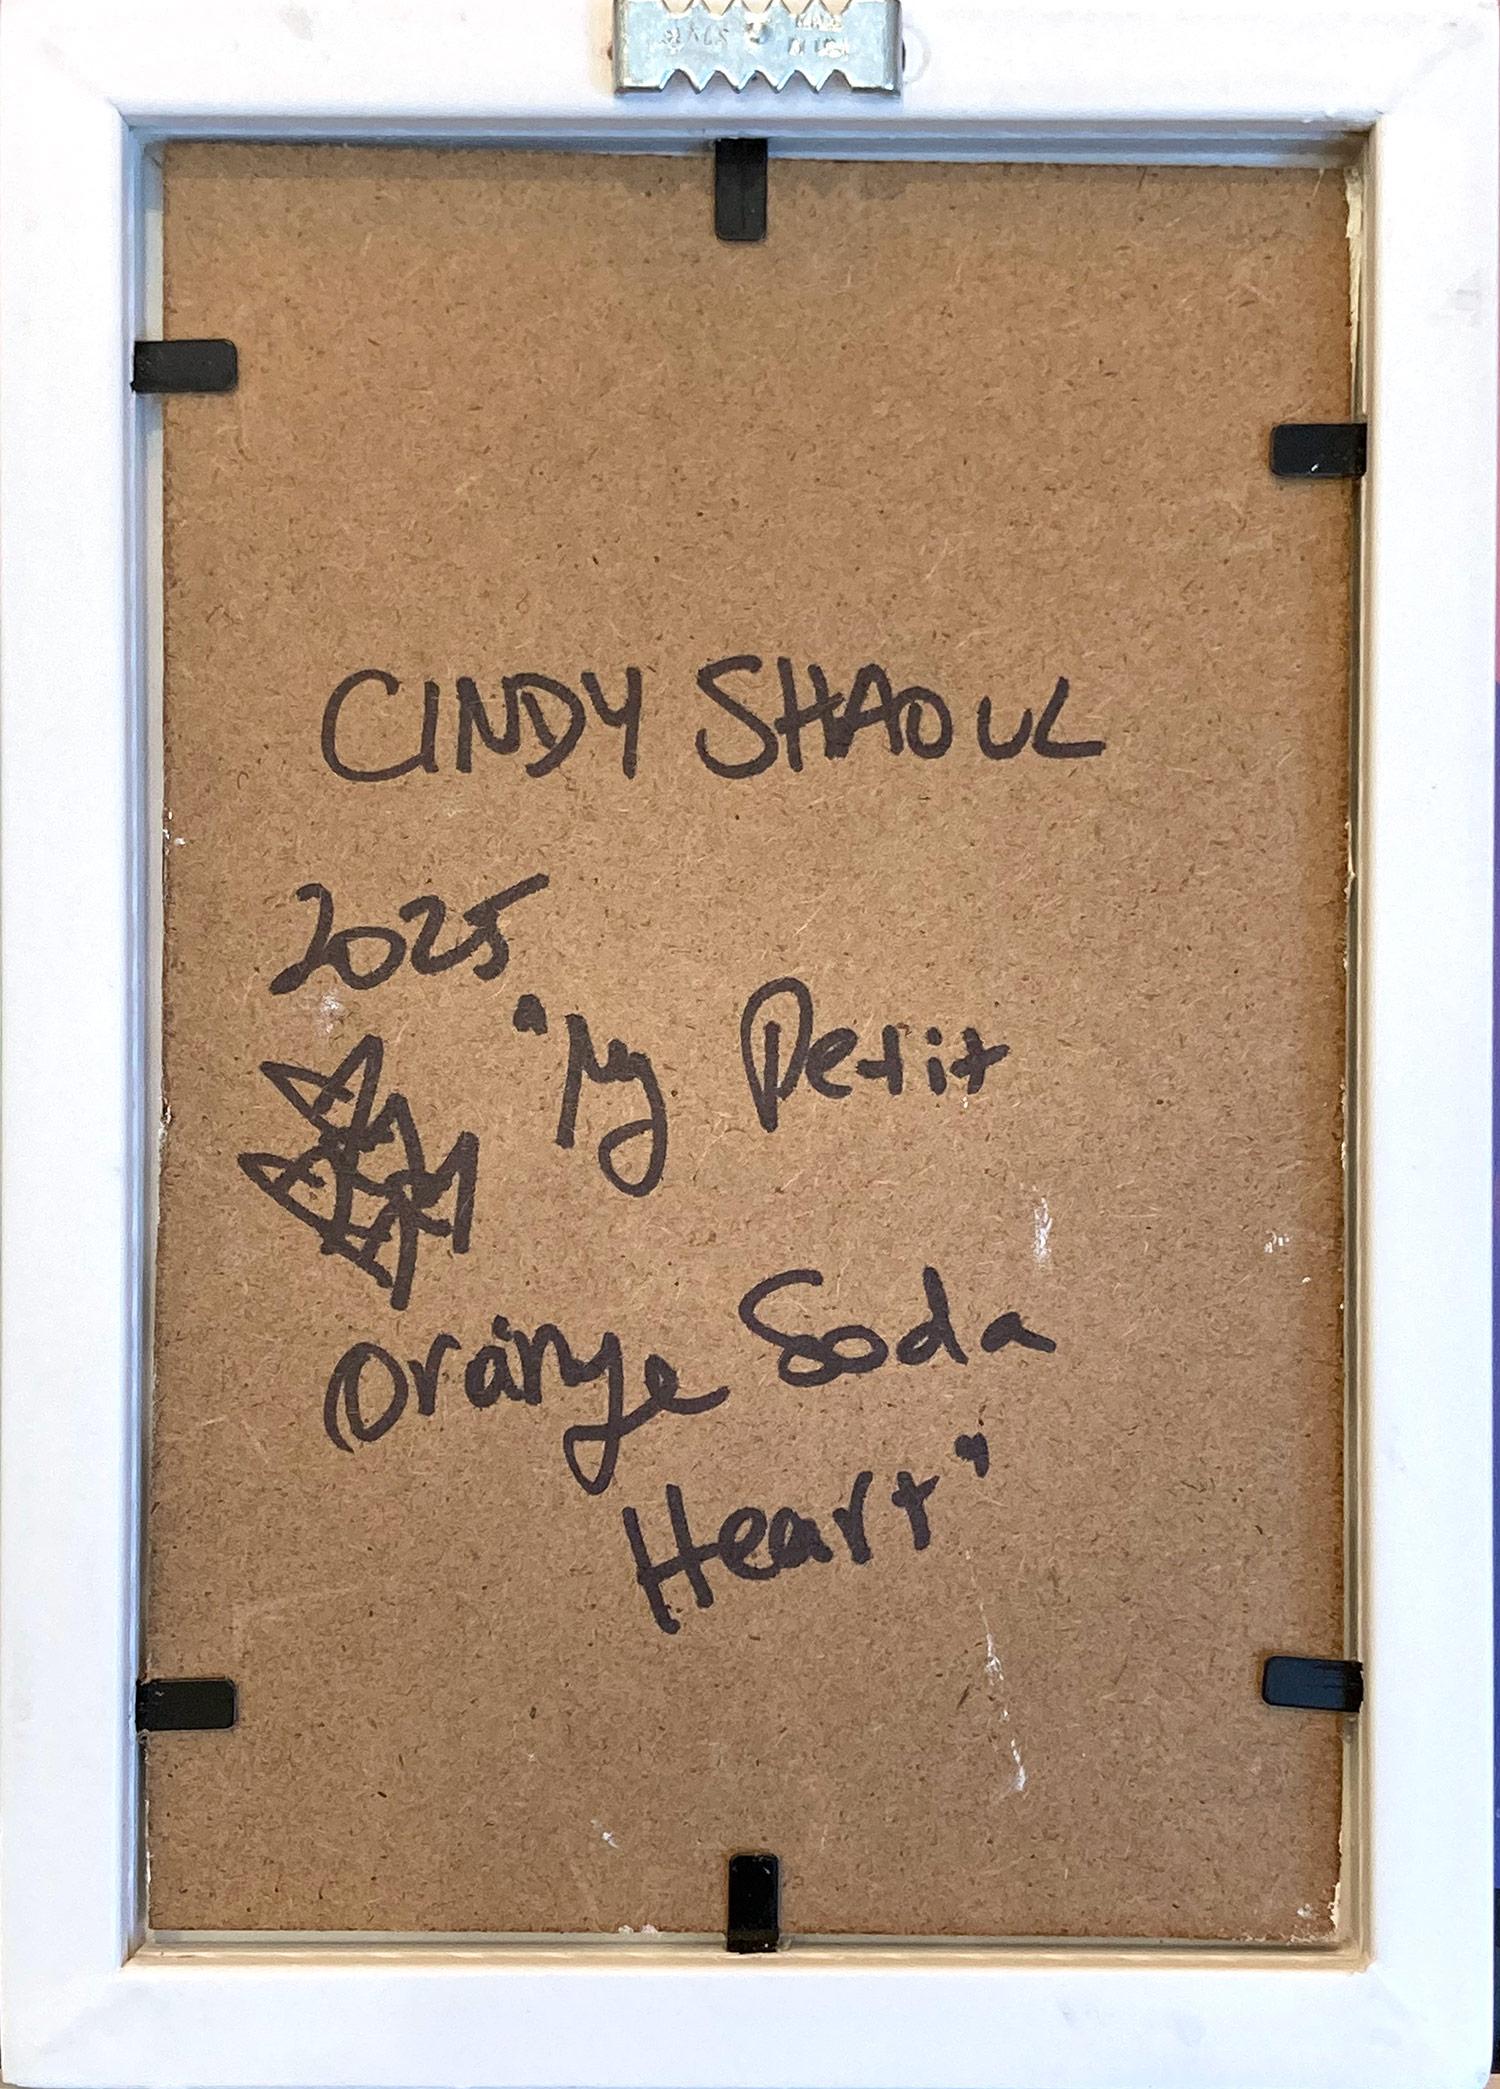 CINDY SHAOUL
2025
"My Petit
Orange Soda
Heart"